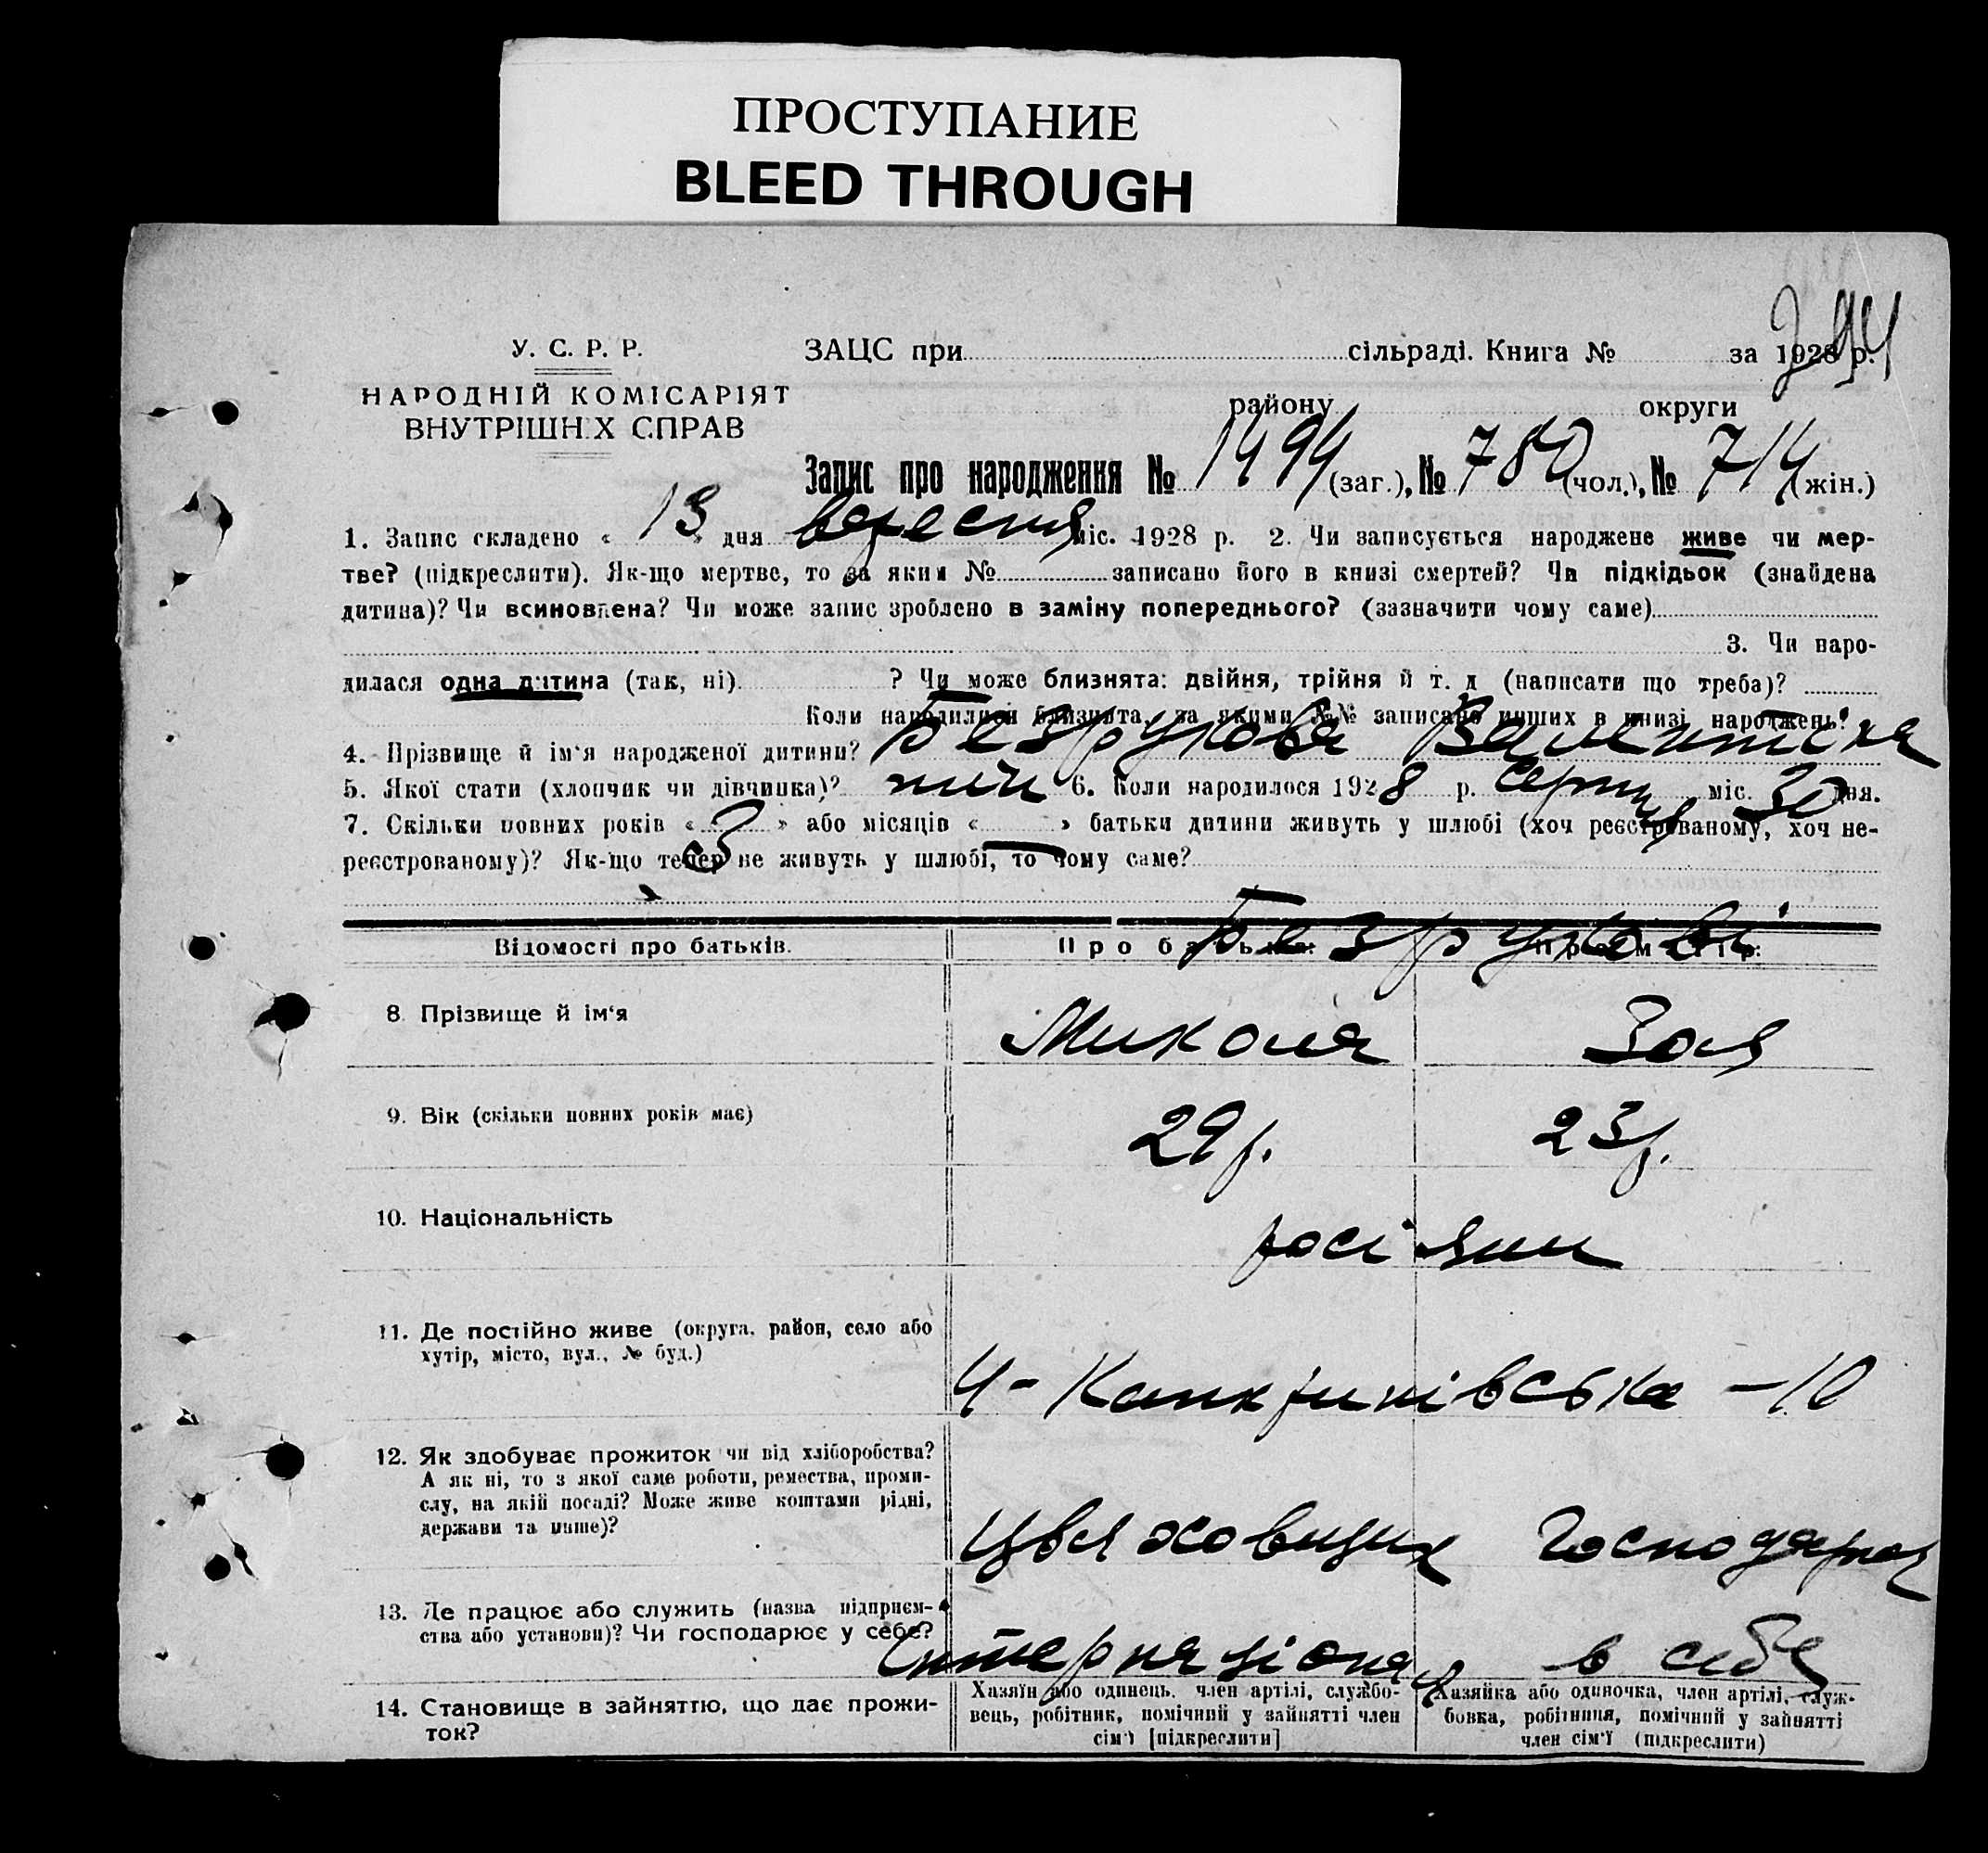 ПРОСТУПАНИЕ
BLEED THROUGH
294
У. С. Р. Р.
НАРОДНІЙ КОМІСАРІЯТ
ВНУТРІШНІХ СПРАВ
ЗАЦС при сільраді. Книга № за 1928 р.
району округи
Запис про народження № 1494 (заг.), № 780 (чол.), № 714 (жін.)
1. Запис складено « 13 » дня вересня міс. 1928 р. 2. Чи записується народжене живе чи мер-
тве? (підкреслити). Як-що мертве, то за яким № записано його в книзі смертей? Чи підкідьок (знайдена
дитина)? Чи всиновлена? Чи може запис зроблено в заміну попереднього? (зазначити чому саме)
3. Чи наро-
дилася одна дитина (так, ні) ? Чи може близнята: двійня, трійня й т. д (написати що треба)?
Коли народилися близнята, за якими №№ записано инших в книзі народжень?
4. Прізвище й ім'я народженої дитини? Безрукова Валентина
5. Якої стати (хлопчик чи дівчинка)? 6. Коли народилося 1928 р. серпня міс. 30 дня.
7. Скільки повних років « 3 » або місяців « » батьки дитини живуть у шлюбі (хоч реєстрованому, хоч не-
реєстрованому)? Як-що тепер не живуть у шлюбі, то чому саме?
Безрукові
Відомості про батьків. Про батька: Про матір:
8. Прізвище й ім'я Микола Зоя
9. Вік (скільки повних років має) 29 р. 23 р.
10. Національність росіяни
11. Де постійно живе (округа, район, село або
хутір, місто, вул., № буд.)
Ч-Канкринівська - 10
12. Як здобуває прожиток чи від хліборобства?
А як ні, то з якої саме роботи, ремества, проми-
слу, на якій посаді? Може живе коштами рідні,
держави та инше)?
Цвяховщик Господарює
13. Де працює або служить (назва підприєм-
ства або установи)? Чи господарює у себе?
в себе
14. Становище в зайняттю, що дає прожи-
ток?
Хазяїн або одинець, член артілі, службо-
вець, робітник, помічний у зайнятті член
сім'ї [підкреслити]
Хазяйка або одиночка, член артілі, служ-
бовка, робітниця, помічний у зайнятті
член сім'ї (підкреслити)